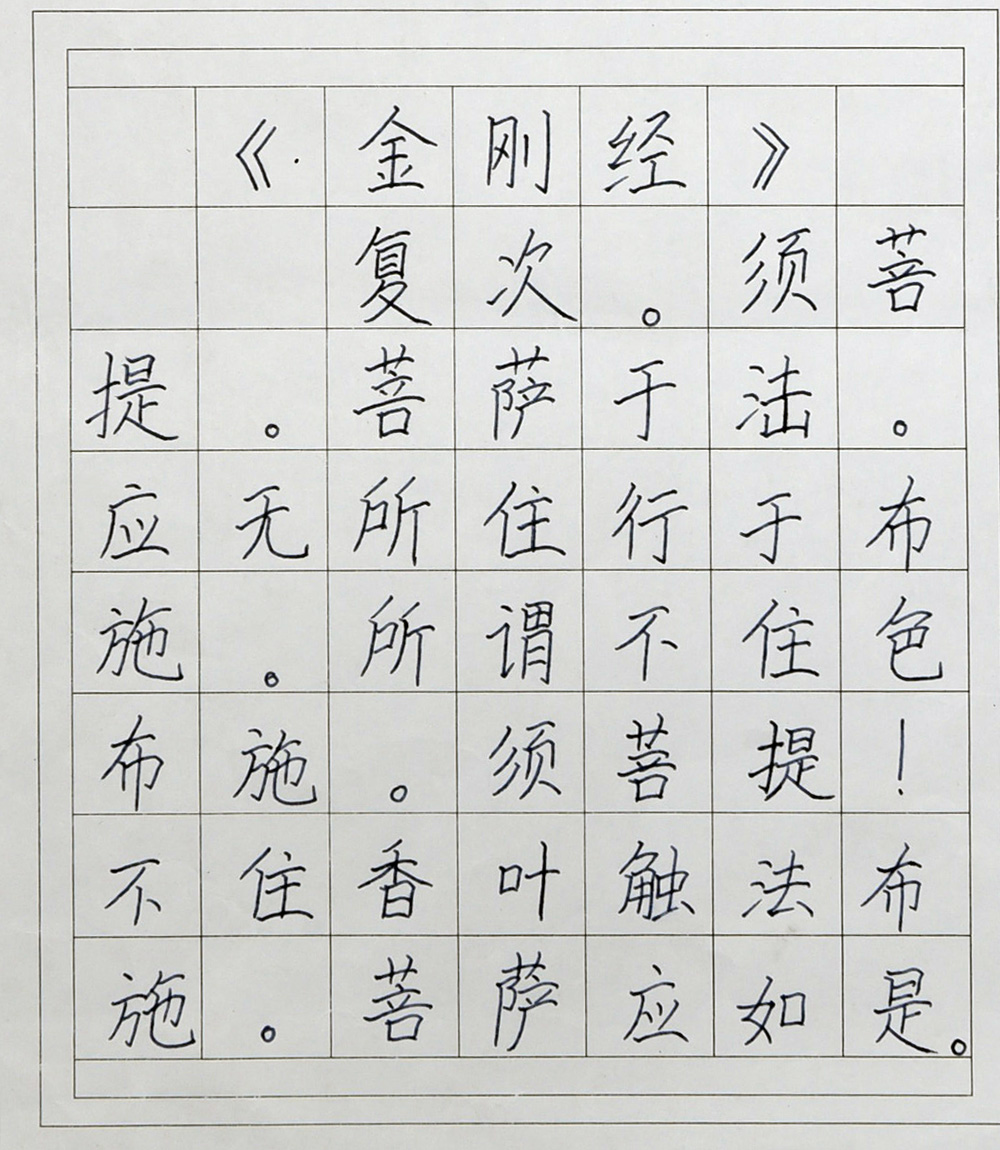 《金刚经》
复次。须菩
提。菩萨于法。
应无所住行于布
施。所谓不住色
布施。须菩提！
不住香叶触法布
施。菩萨应如是。